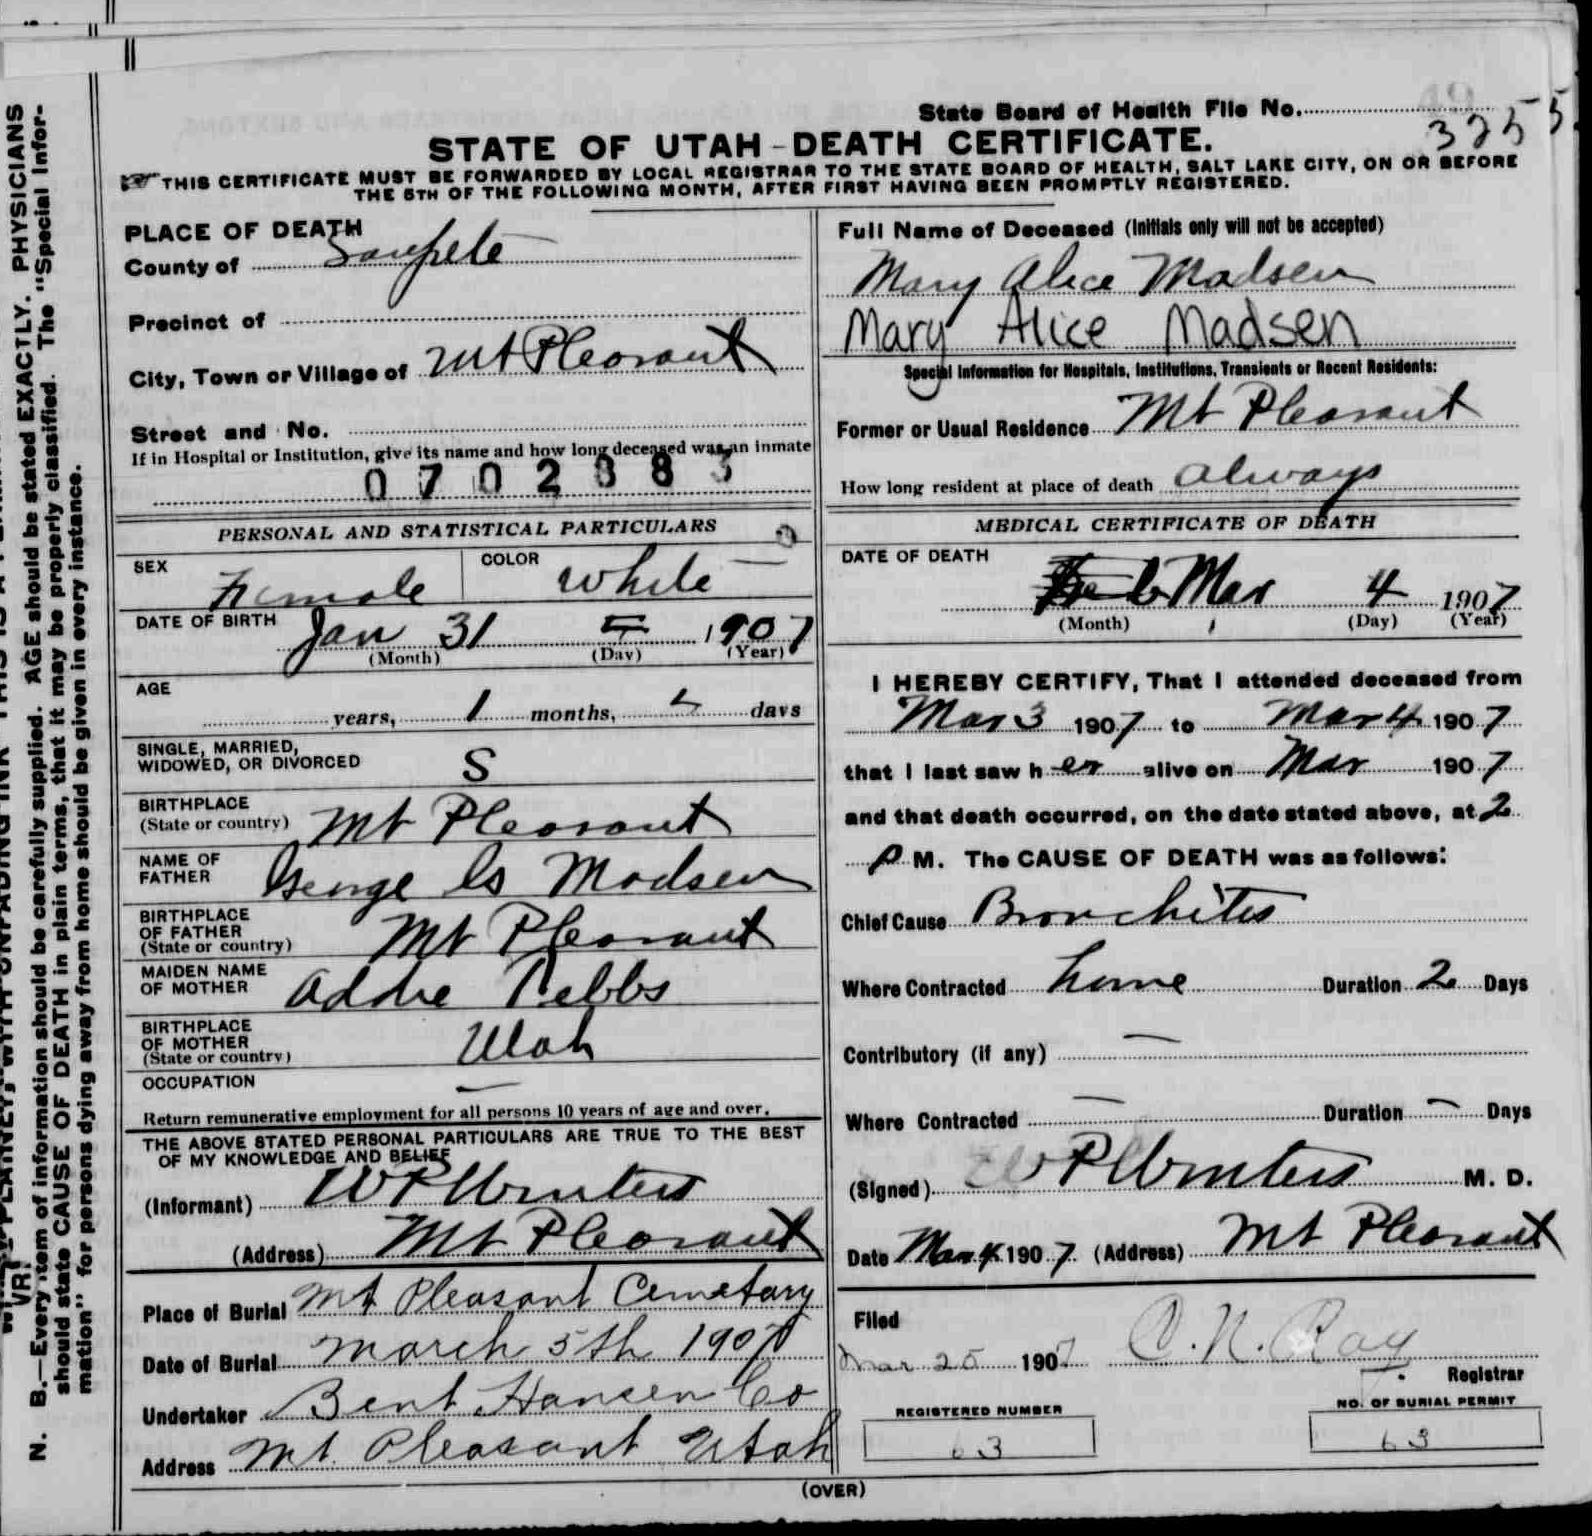 State Board of Health File No. 3255
STATE OF UTAH-DEATH CERTIFICATE.
THIS CERTIFICATE MUST BE FORWARDED BY LOCAL REGISTRAR TO THE STATE BOARD OF HEALTH, SALT LAKE CITY, ON OR BEFORE
THE 5TH OF THE FOLLOWING MONTH, AFTER FIRST HAVING BEEN PROMPTLY REGISTERED.
PLACE OF DEATH
County of Sanpete
Precinct of
City, Town or Village of Mt Pleasant
Street and No.
If in Hospital or Institution, give its name and how long deceased was an inmate
0702883
PERSONAL AND STATISTICAL PARTICULARS
SEX Female COLOR White
DATE OF BIRTH Jan 31 1907
(Month) (Day) (Year)
AGE
years, 1 months, 4 days
SINGLE, MARRIED,
WIDOWED, OR DIVORCED S
BIRTHPLACE
(State or country) Mt Pleasant
NAME OF
FATHER George Madsen
BIRTHPLACE
OF FATHER
(State or country) Mt Pleasant
MAIDEN NAME
OF MOTHER Addie Tebbs
BIRTHPLACE
OF MOTHER
(State or country) Utah
OCCUPATION —
Return remunerative employment for all persons 10 years of age and over.
THE ABOVE STATED PERSONAL PARTICULARS ARE TRUE TO THE BEST
OF MY KNOWLEDGE AND BELIEF
(Informant) W P Winters
(Address) Mt Pleasant
Place of Burial Mt Pleasant Cemetary
Date of Burial March 5th 1907
Undertaker Bent Hansen Co
Address Mt. Pleasant Utah
Full Name of Deceased (Initials only will not be accepted)
Mary Alice Madsen
Mary Alice Madsen
Special Information for Hospitals, Institutions, Transients or Recent Residents:
Former or Usual Residence Mt Pleasant
How long resident at place of death always
MEDICAL CERTIFICATE OF DEATH
DATE OF DEATH
Feb Mar 4 1907
(Month) (Day) (Year)
I HEREBY CERTIFY, That I attended deceased from
Mar 3 1907 to Mar 4 1907
that I last saw her alive on Mar 1907
and that death occurred, on the date stated above, at 2
P M. The CAUSE OF DEATH was as follows:
Chief Cause Bronchites
Where Contracted home Duration 2 Days
Contributory (if any) —
Where Contracted — Duration — Days
(Signed) W P Winters M. D.
Date Mar 4 1907 (Address) Mt Pleasant
Filed
Mar 25 1907 C. N. Ray
Registrar
REGISTERED NUMBER
63
NO. OF BURIAL PERMIT
63
(OVER)
N. B.—Every item of information should be carefully supplied. AGE should be stated EXACTLY. PHYSICIANS
should state CAUSE OF DEATH in plain terms, that it may be properly classified. The "Special Infor-
mation" for persons dying away from home should be given in every instance.